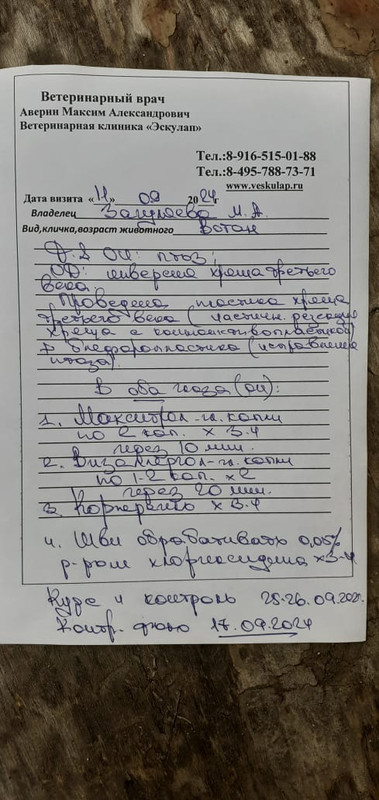 Ветеринарный врач
Аверин Максим Александрович
Ветеринарная клиника «Эскулап»
Тел.:8-916-515-01-88
Тел.:8-495-788-73-71
www.veskulap.ru
Дата визита «11» 09 2024г
Владелец М. А.
Вид,кличка,возраст животного Вотан
D.S OU: птоз;
OD: инверсия хряща третьего
века.
Проведена пластика хряща
третьего века (частичн. резекция
хряща с конъюнктивопластикой)
+ блефаропластика (исправление
птоза).
В оба глаза (OU):
1. Макситрол - гл. капли
по 2 кап. х 3-4
через 10 мин.
2. Визаллергол - гл. капли
по 1-2 кап. х2
через 20 мин.
3. Корнерегель х 3-4
4. Швы обрабатывать 0,05%
р-ром хлоргексидина х3-4
Курс и контроль 25-26.09.2024.
Контр. фото 17.09.2024